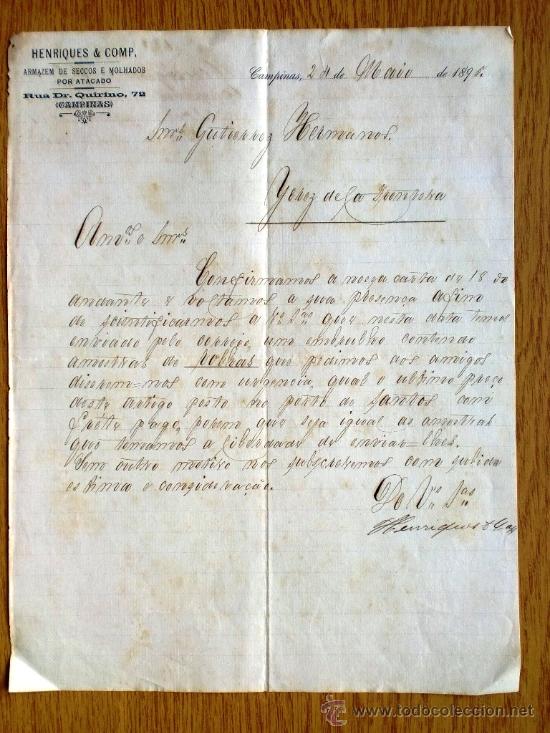 HENRIQUES & COMP.
ARMAZEM DE SECCOS E MOLHADOS
POR ATACADO
Rua Dr. Quirino, 72
(CAMPINAS)
Campinas, 24 de Maio de 189
Snrs. Gutierrez Hermanos.
Yerez de la Frontera
Amos. e Snrs.
Confirmamos a nossa carta de 18 do
andante e voltamos a sua presença afim
de scientificarmos a Vas. Sas. que nesta data temos
enviado pelo correyo, um embrulho contendo
amostras de rolhas que pedimos aos amigos
dizerem=nos com urgencia, qual o ultimo preço
deste artigo posto no porto de Santos com
frette pago, porem que seja igual as amostras
que tomamos a liberdade de enviar=lhes.
Sem outro motivo nos subscrevemos com subida
estima e consideração.
De Vas. Sas.
Henriques & Comp
www.todocoleccion.net